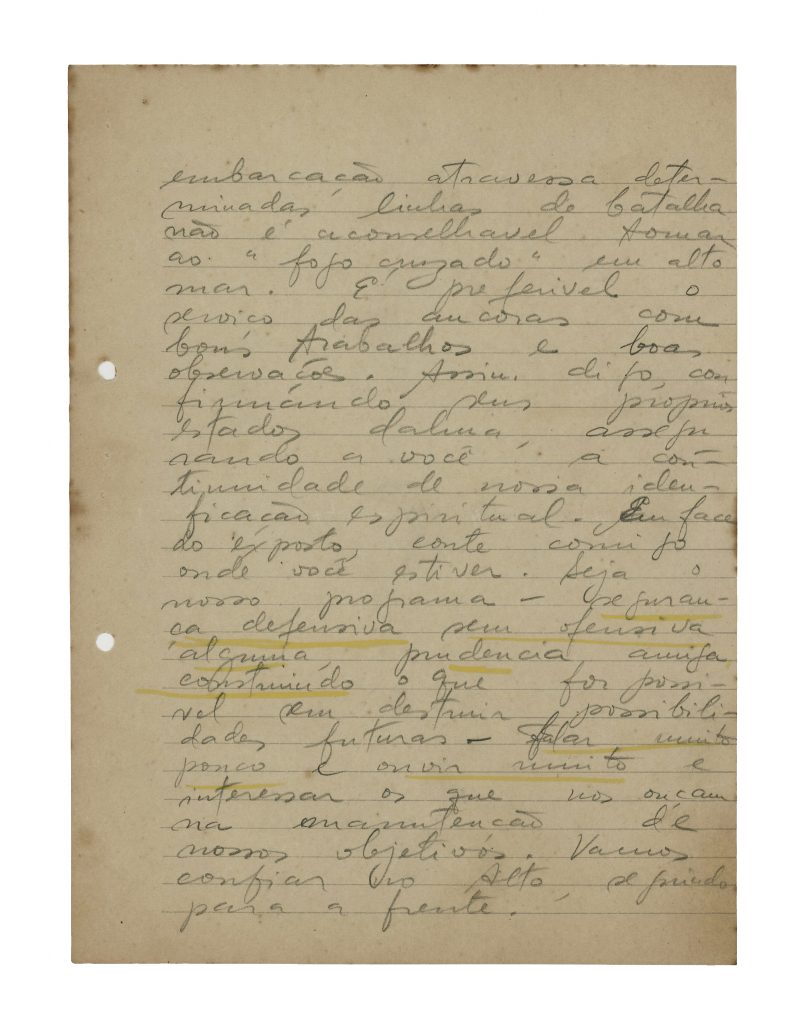 embarcação atravessa deter-
minadas linhas de batalha
não é aconselhavel tomar
ao "fogo cruzado" em alto
mar. É preferivel o
serviço das ancoras com
bons trabalhos e boas
observações. Assim digo, con
firmando seus próprios
estados dalma, assegu
rando a você a con-
tinuidade de nossa iden-
ficação espiritual. Em face
do exposto, conte comigo
onde você estiver. Seja o
nosso programa - seguran-
ça defensiva sem ofensiva
alguma, prudencia amiga,
construindo o que for possi-
vel sem destruir possibili-
dades futuras - falar muito
pouco e ouvir muito e
interessar os que nos ouçam
na manutenção de
nossos objetivos. Vamos
confiar no Alto, seguindo
para a frente.